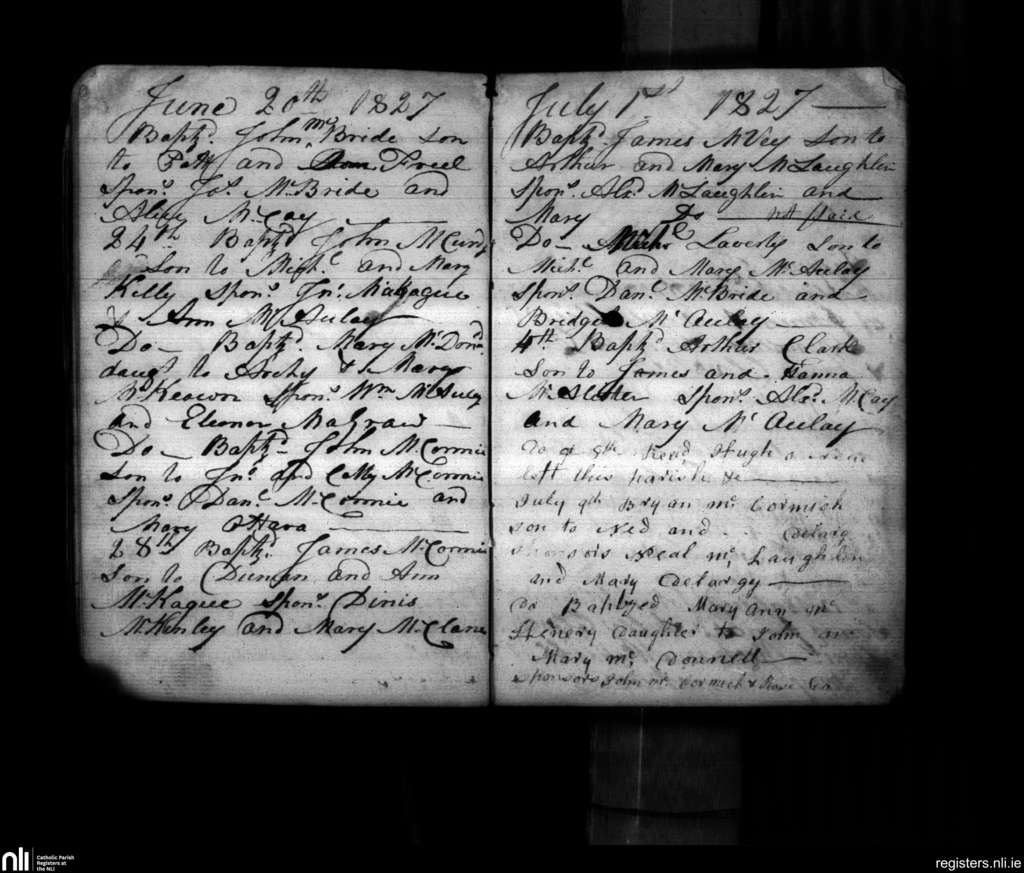 June 20th 1827
Baptd. John McBride son
to Patt and Ann Freel
Spons. Jos. McBride and
Alice McCay
24th Baptd John McCurdy
Son to Michl. and Mary
Kelly Spons. Jn. Makague
& Ann McAulay
Do - Baptd. Mary McDond
daugt to Archy & Mary
McKeown Spons. Wm McAuley
and Eleonor Magraw
Do - Baptd - John McCormic
Son to Jn. and Catty McCormic
Spons. Danl. McCormic and
Mary OHara
28th Baptd. James McCormic
Son to Duncan and Ann
McKague Spons. Dinis
McKinley and Mary McClane
July 1st 1827
Baptd. James McVey Son to
Arthur and Mary McLaughlin
Spons. Alexr. McLaughlin and
Mary Do not paid
Do - Laverty Son to
Michl. and Mary McAulay
Spons. Danl. McBride and
Bridget McAulay
4th Baptd Arthur Clark
Son to James and Hanna
McAlister Spons. Alexr. McCay
and Mary McAulay
8th Revd Hugh o
left this parish &c
July 9th Bryan mc Cormick
son to Ned and Delarg
sponsors Neal mc Laughlin
and Mary Delargy
Do Baptyzed Mary ann mc
Henery Daughter to John an
Mary mc Donnell
sponsors John mc Cormick & Rose
nli
Catholic Parish
Registers at
the NLI
registers.nli.ie